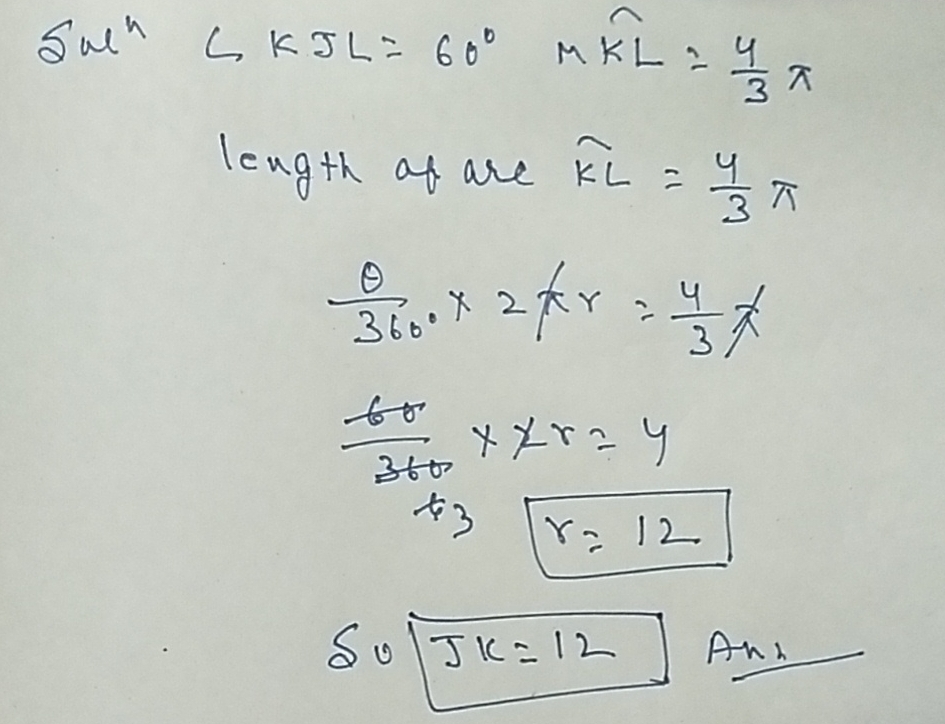 Solⁿ ∠ KJL = 60° m K͡L = 4/3 π
length of arc K͡L = 4/3 π
θ/360° × 2πr = 4/3 π
60/360 × 2r = 4
6 3
r = 12
So JK = 12 Ans